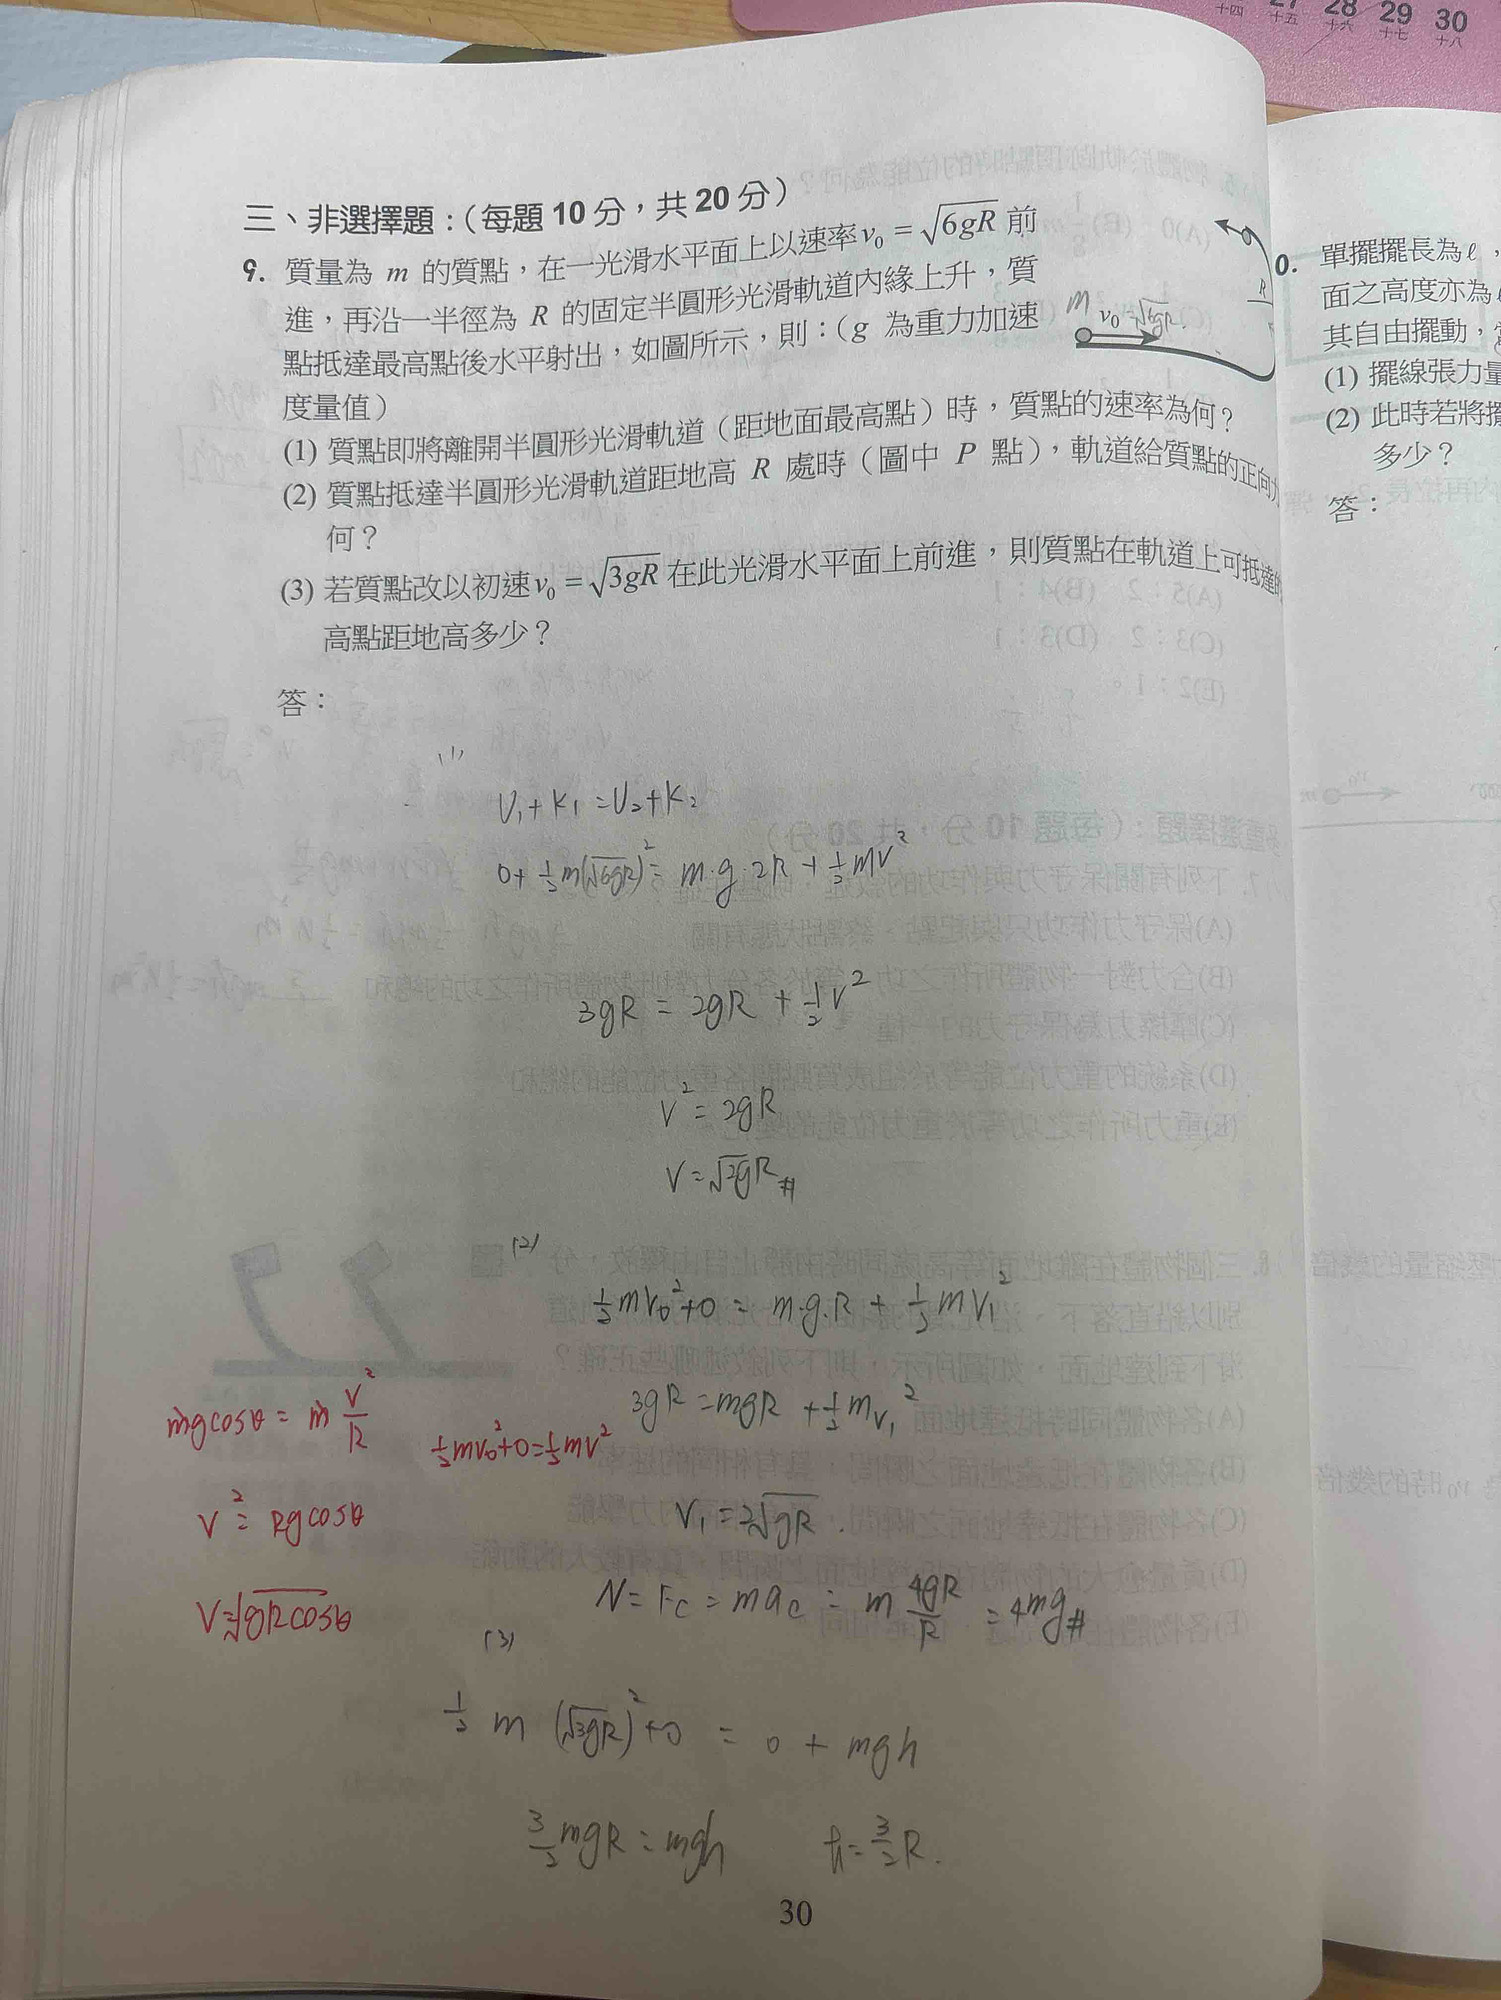 27 28 29 30
十四 十五 十六 十七 十八
三、非選擇題：（每題10分，共20分）
9. 質量為 m 的質點，在一光滑水平面上以速率v₀ = √6gR 前
進，再沿一半徑為 R 的固定半圓形光滑軌道內緣上升，質
點抵達最高點後水平射出，如圖所示，則：（g 為重力加速
度量值）
m v₀=√6gR
R
(1) 質點即將離開半圓形光滑軌道（距地面最高點）時，質點的速率為何？
(2) 質點抵達半圓形光滑軌道距地高 R 處時（圖中 P 點），軌道給質點的正向力
何？
(3) 若質點改以初速v₀ = √3gR 在此光滑水平面上前進，則質點在軌道上可抵達的
高點距地高多少？
答：
(1)
U₁+K₁=U₂+K₂
0+½m(√6gR)²=m·g·2R+½mv²
3gR=2gR+½v²
v²=2gR
v=√2gR#
(2)
½mv₀²+0=m·g·R+½mv₁²
3gR=mgR+½mv₁²
v₁=2√gR.
N=Fc=mac=m 4gR/R=4mg#
mgcosθ=m v²/R
½mv₀²+0=½mv²
v²=Rgcosθ
v=√gRcosθ
(3)
½m(√3gR)²+0=0+mgh
3/2mgR=mgh h=3/2R.
30
0. 單擺擺長為ℓ，
面之高度亦為
其自由擺動，
(1) 擺線張力量
(2) 此時若將擺
多少？
答：